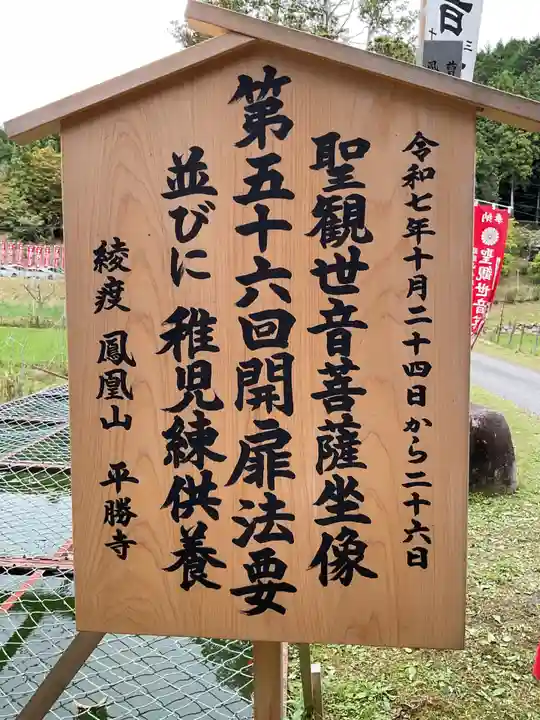 令和七年十月二十四日から二十六日
聖観世音菩薩坐像
第五十六回開扉法要
並びに 稚児練供養
綾度 鳳凰山 平勝寺
奉納
聖観世音
音